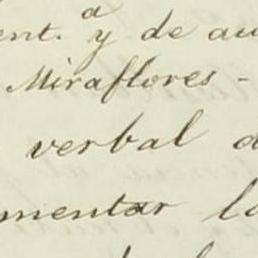 ent.ª y de au
Miraflores -
verbal d
mentar la